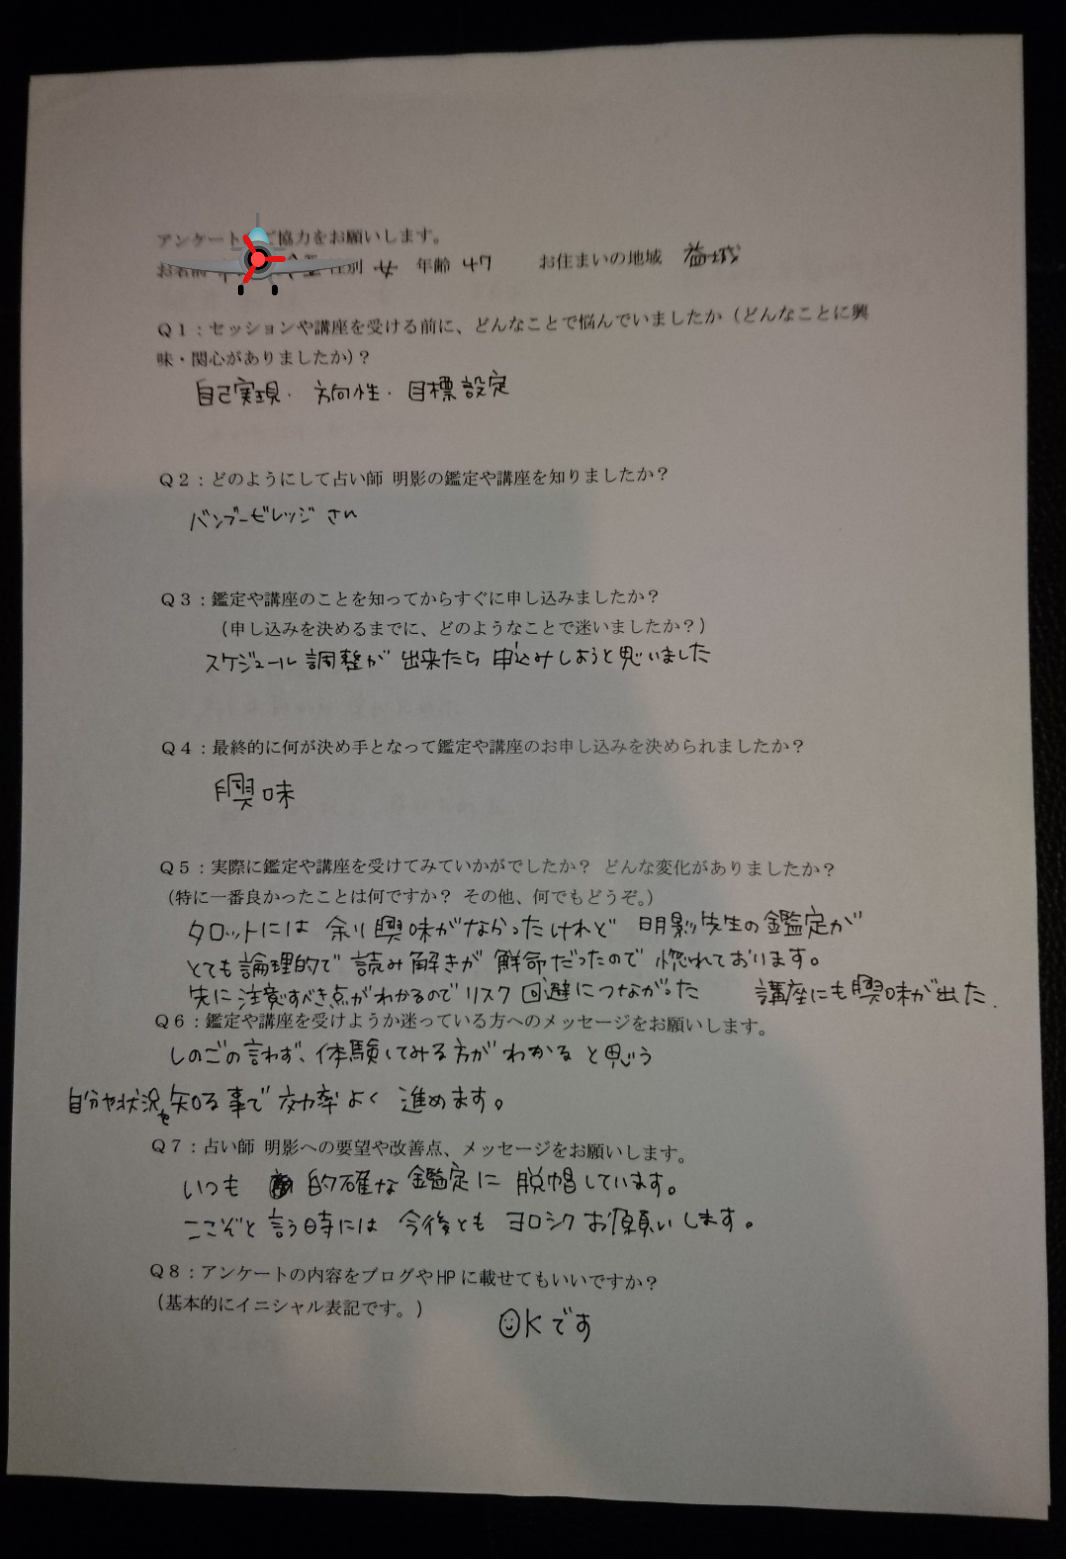 アンケートご協力をお願いします。
お名前 性別 女 年齢 47 お住まいの地域 益城
Q1:セッションや講座を受ける前に、どんなことで悩んでいましたか(どんなことに興
味・関心がありましたか)?
自己実現・方向性・目標設定
Q2:どのようにして占い師 明影の鑑定や講座を知りましたか?
バンブービレッジさん
Q3:鑑定や講座のことを知ってからすぐに申し込みましたか?
(申し込みを決めるまでに、どのようなことで迷いましたか?)
スケジュール調整が出来たら申込みしようと思いました
Q4:最終的に何が決め手となって鑑定や講座のお申し込みを決められましたか?
興味
Q5:実際に鑑定や講座を受けてみていかがでしたか? どんな変化がありましたか?
(特に一番良かったことは何ですか? その他、何でもどうぞ。)
タロットには余り興味がなかったけれど 明影先生の鑑定が
とても論理的で読み解きが鮮命だったので惚れております。
先に注意すべき点がわかるのでリスク回避につながった 講座にも興味が出た.
Q6:鑑定や講座を受けようか迷っている方へのメッセージをお願いします。
しのごの言わず、体験してみる方がわかると思う
自分や状況を知る事で効率よく進めます。
Q7:占い師 明影への要望や改善点、メッセージをお願いします。
いつも 的確な鑑定に脱帽しています。
ここぞと言う時には今後ともヨロシクお願いします。
Q8:アンケートの内容をブログやHPに載せてもいいですか?
(基本的にイニシャル表記です。)
OKです